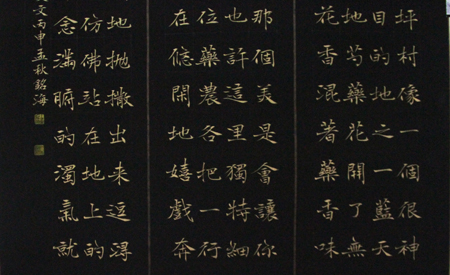 坪村像一個很神
目的地之一藍天
地芍藥花開了無
花香混著藥香味
那個美是會讓你
也許這里獨特細
位藥農各把一行
在悠閑地嬉戲奔
地拋撒出來逗淂
仿佛站在地上的
念滿腑的濁氣就
文丙申孟秋銘海